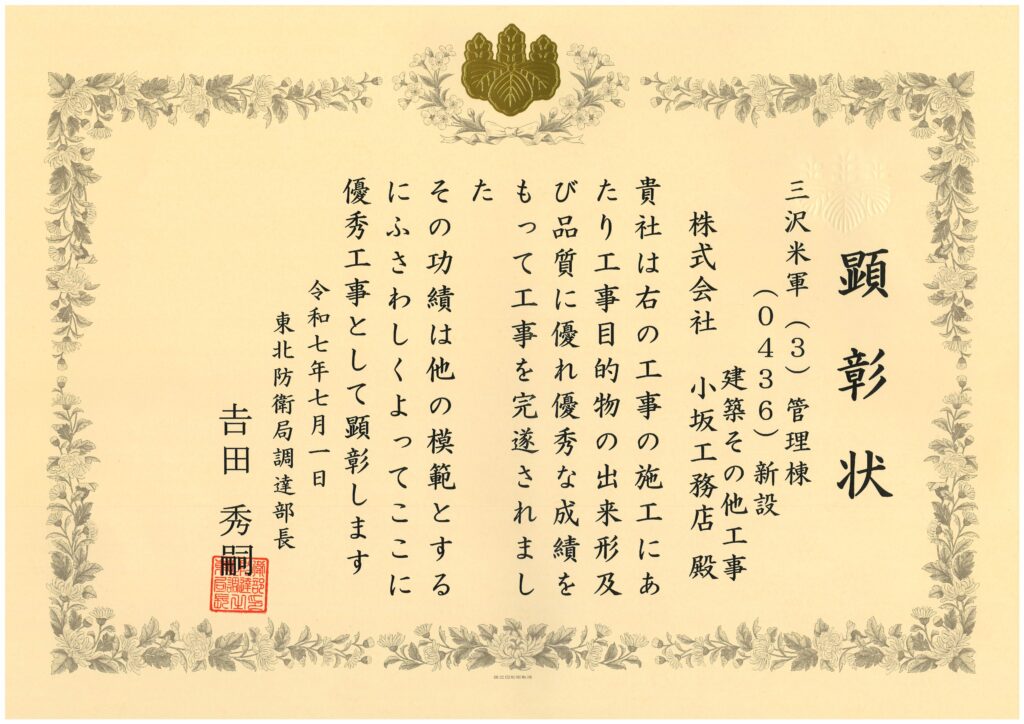 顕彰状
三沢米軍（3）管理棟
（0436）新設
建築その他工事
株式会社 小坂工務店 殿
貴社は右の工事の施工にあ
たり工事目的物の出来形及
び品質に優れ優秀な成績を
もって工事を完遂されまし
た
その功績は他の模範とする
にふさわしくよってここに
優秀工事として顕彰します
令和七年七月一日
東北防衛局調達部長
𠮷田 秀嗣